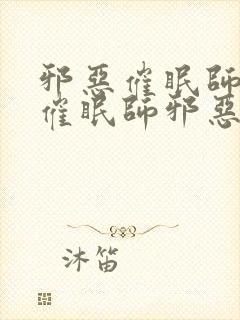 邪惡催眠師
催眠師邪惡
沐笛